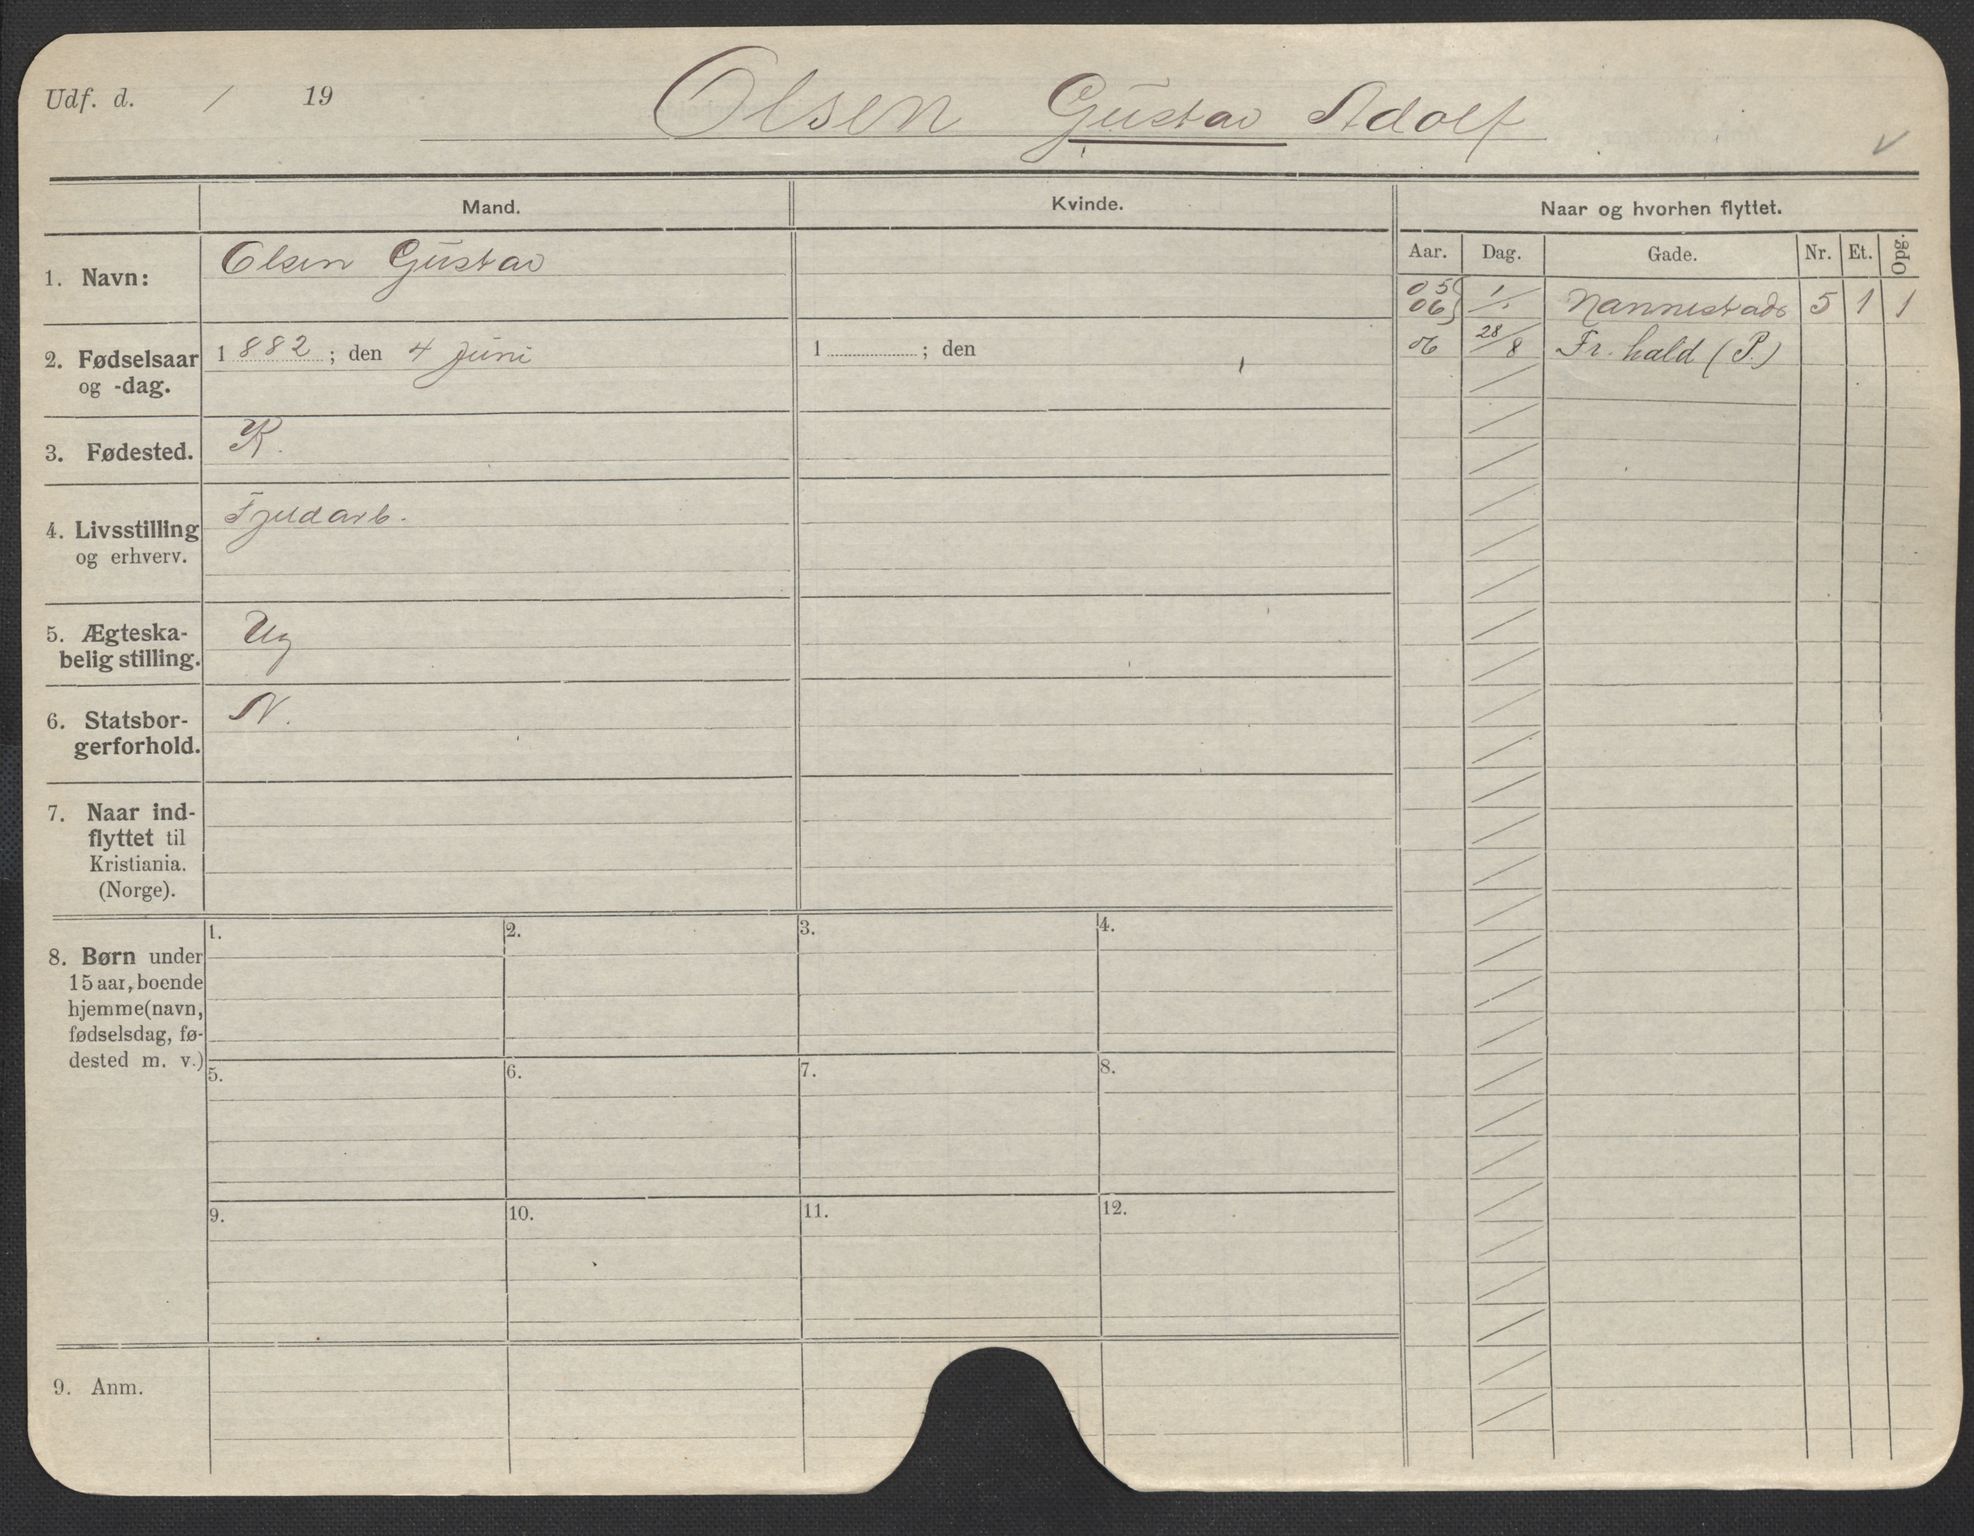 Udf. d. / 19
Olsen Gustav Adolf
Mand.
Kvinde.
Naar og hvorhen flyttet.
Aar. Dag. Gade. Nr. Et. Opg.
1. Navn:
Olsen Gustav
05 06 1/1 Nannestads 5 1 1
06 28/8 Fr.hald (P.)
2. Fødselsaar
og -dag.
1882; den 4 Juni
1 ; den
3. Fødested.
K.
4. Livsstilling
og erhverv.
Fjeldarb.
5. Ægteska-
belig stilling.
Ug
6. Statsbor-
gerforhold.
N.
7. Naar ind-
flyttet til
Kristiania.
(Norge).
8. Børn under
15 aar, boende
hjemme (navn,
fødselsdag, fø-
dested m. v.)
1. 2. 3. 4.
5. 6. 7. 8.
9. 10. 11. 12.
9. Anm.